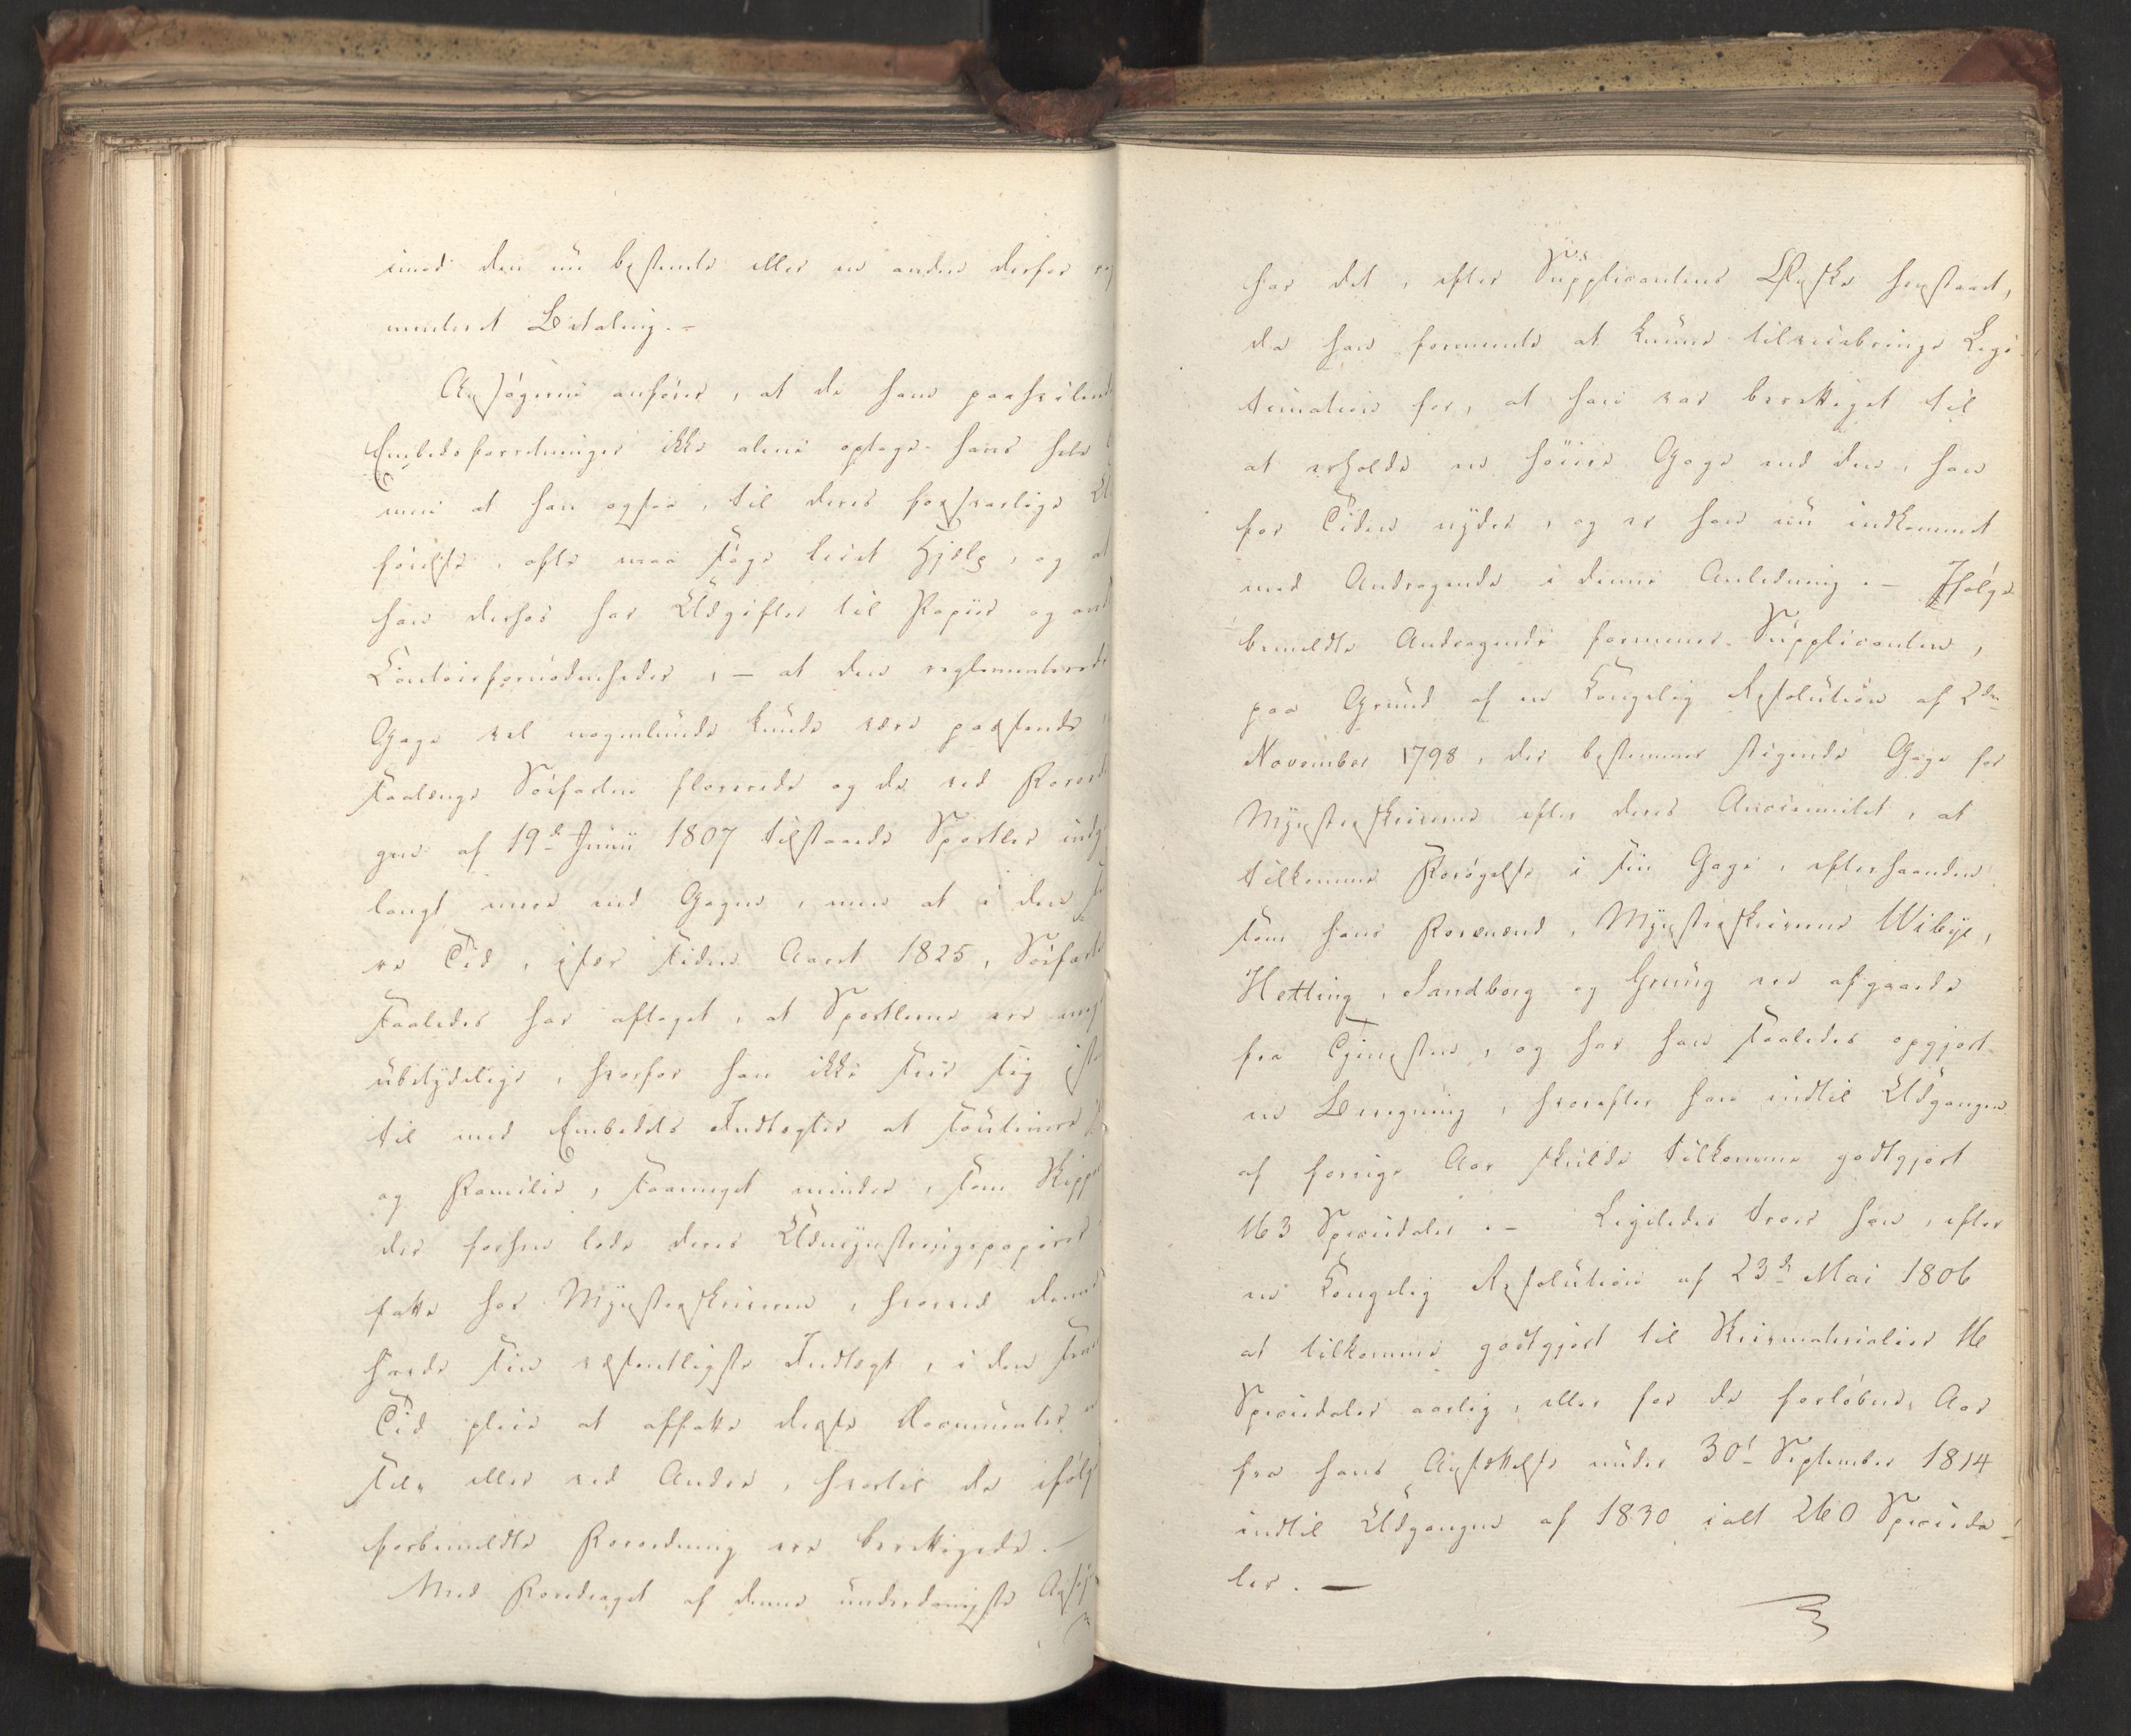 imod den nu bestemte eller en anden derfor
menteret Betaling. –
Ansøgeren anfører, at de ham paahvilende
Embedsforretninger ikke alene optage hans hele
men at han ogsaa, til deres forsvarlige Ud
førelse, ofte maa søge leiet Hjælp, og at
han derhos har Udgifter til Papiir og and
Contoirfornødenheder, – at den reglementerede
Gage vel nogenlunde kunde være passende,
saalænge Søfarten florerede og de ved Forord
gen af 19d Junii 1807 tilstaaede Sportler indg
langt mere end Gagen, men at i den
re Tid, især siden Aaret 1825, Søfarten
saaledes har aftaget, at Sportlerne ere meget
ubetydelige, hvorfor han ikke seer sig istand
til med Embedets Indtægter at soutinere
og Familie, saameget mindre, som Skippere
der forhen lode deres Udmynstringspapirer
fatte hos Mynsterskriveren, hvorved denne
havde sin væsentligste Indtægt, i den
Tid pleie at affatte disse Documenter
selv eller ved Andre, hvortil de ifølge
forbemeldte Forordning ere berettigede. –
Med Foredraget af denne underdanigste Ansøg
har det, efter Supplicantens Ønske henstaaet,
da han formeente at kunne tilveiebringe Legi-
timation for, at han var berettiget til
at erholde en høiere Gage end den, han
for Tiden nyder, og er han nu indkommet
med Andragende i denne Anledning. – Ifølge
bemeldte Andragende formener Supplicanten,
paa Grund af en Kongelig Resolution af 2den
November 1798, der bestemmer stigende Gage for
Mynsterskriverne efter deres Anciennitet, at
tilkomme Forøgelse i sin Gage, efterhaanden
som hans Formænd, Mynsterskriverne Wibye,
Hetting, Sandborg og Grüng ere afgaaede
fra Tjenesten, og har han saaledes opgjort
en Beregning, hvorefter han indtil Udgangen
af forrige Aar skulde tilkomme godtgjort
163 Speciedaler. – Ligeledes troer han, efter
en Kongelig Resolution af 23d Mai 1806
at tilkomme godtgjort til Skrivmaterialier 16
Speciedaler aarlig, eller for de forløbne Aar
fra hans Ansættelse under 30t September 1814
indtil Udgangen af 1830 ialt 260 Specieda-
ler. –